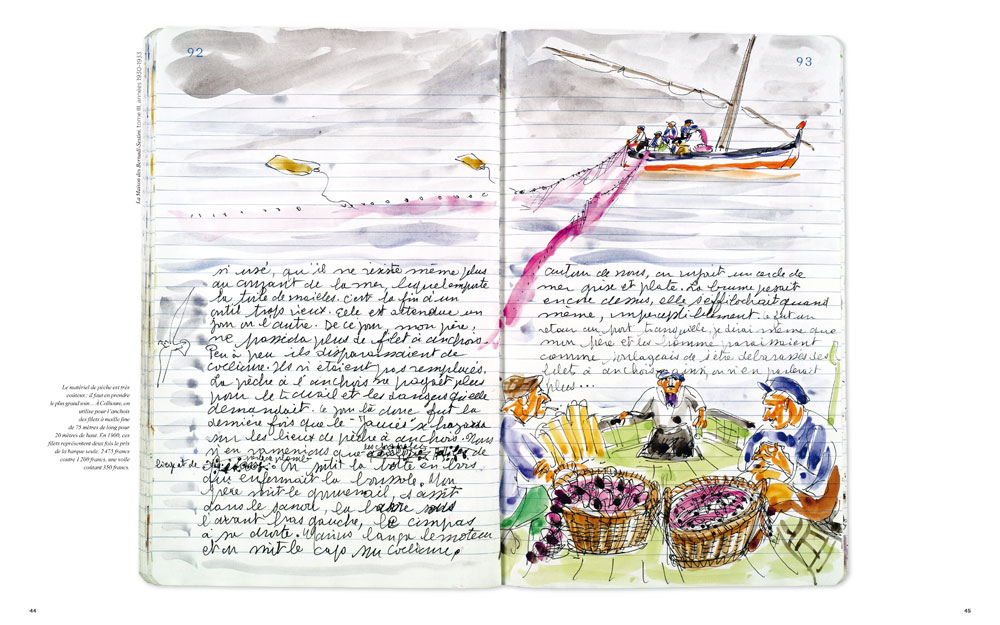 92
La Maison des Bernadi-Sestini, tome III, années 1930-1933
si usé, qu'il ne résiste même plus
au courant de la mer, lequel emporte
la tire de mailes. c'est la fin d'un
outil trop vieux. Elle est attendue un
jour ou l'autre. De ce jour, mon père,
ne posseda plus de filet à anchois.
Peu à peu ils disparaissaient de
Collioure. Ils n'étaient pas remplacés.
La pêche à l'anchois ne payait plus
pour le travail et les dangers qu'elle
demandait. Ce jour là donc fut la
dernière fois que le
sur les lieux de pêche à anchois. Nous
n'en ramenions que
lièges et de
On mit la boîte en bois
qui enfermait la boussole. Mon
père mit le gouvernail, s'assit
dans le la barre sous
l'avant bras gauche, le compas
à sa droite. lança le moteur
et on mit le cap sur Collioure.
Le matériel de pêche est très
coûteux ; il faut en prendre
le plus grand soin… À Collioure, on
utilise pour l'anchois
des filets à maille fine
de 75 mètres de long pour
20 mètres de haut. En 1900, ces
filets représentent deux fois le prix
de la barque seule, 2 475 francs
contre 1 200 francs, une voile
coûtant 350 francs.
44
93
autour de nous, on voyait un cercle de
mer grise et plate. La brume pesait
encore dessus, elle s'effilochait quand
même, imperceptiblement. Ce fut un
retour au port tranquille, je dirai même que
mon père et les hommes paraissaient
comme soulagés de s'être débarassés des
filets à anchois ainsi, on n'en parlerait
plus...
45